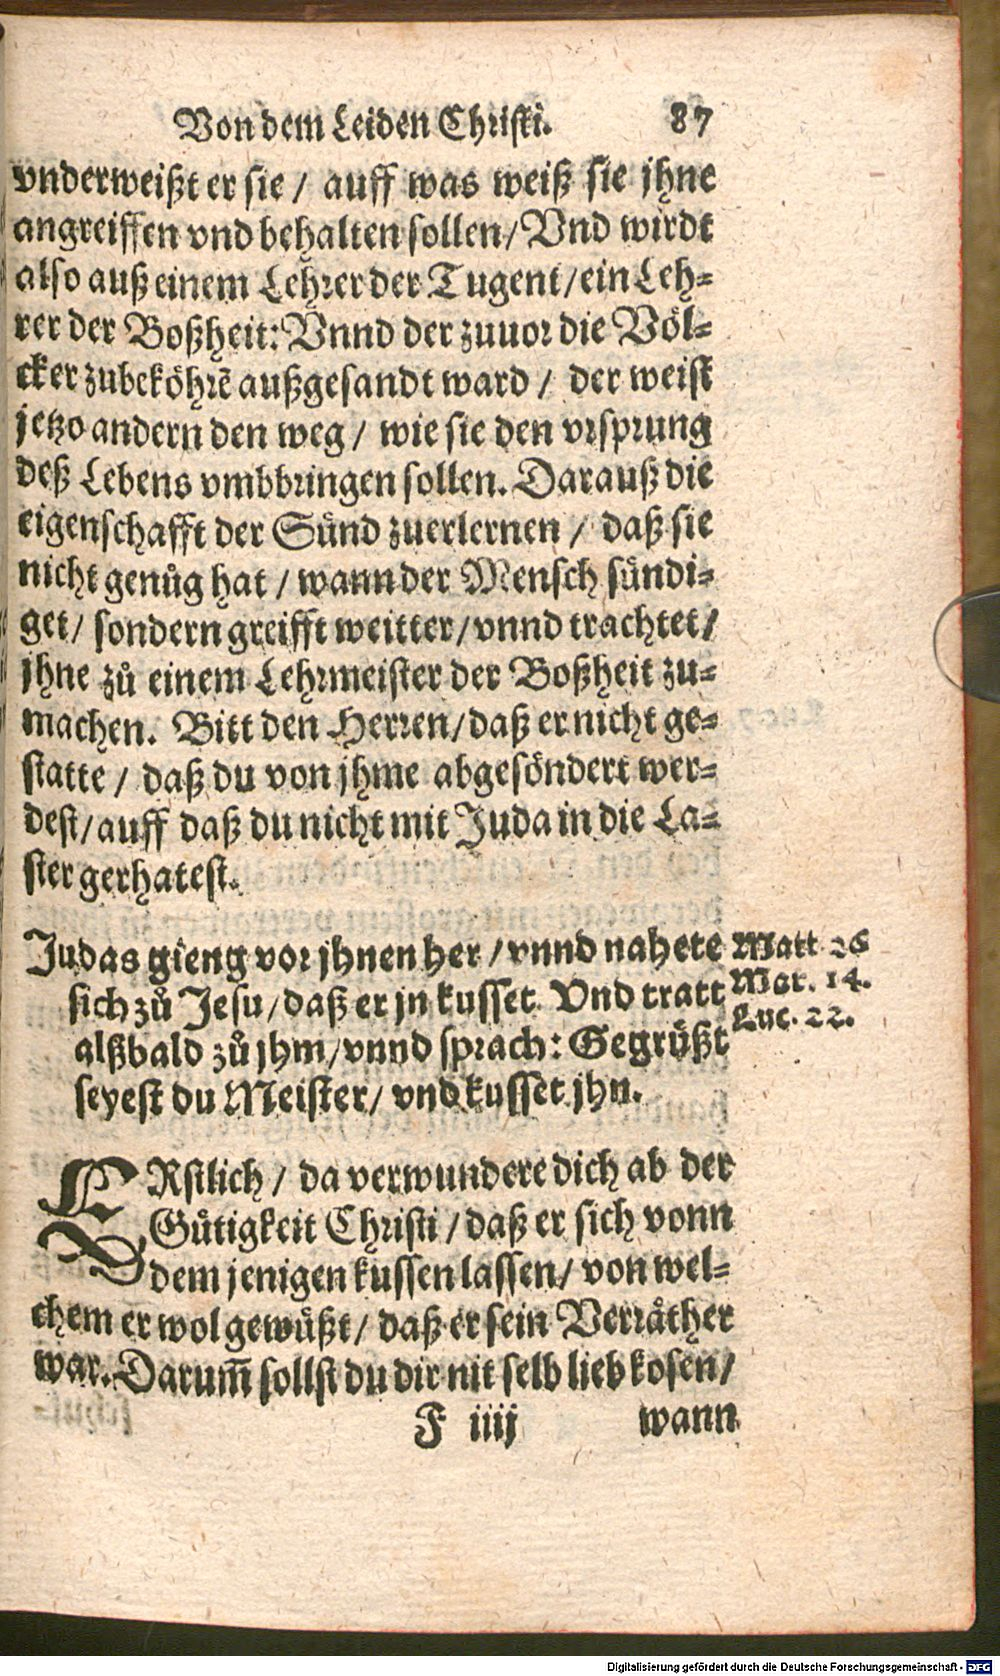 Von dem Leiden Christi. 87
vnderweißt er sie / auff was weiß sie jhne
angreiffen vnd behalten sollen / Vnd wirdt
also auß einem Lehrer der Tugent / ein Leh-
rer der Boßheit: Vnnd der zuuor die Völ-
cker zubeköhrē außgesandt ward / der weist
jetzo andern den weg / wie sie den vrsprung
deß Lebens vmbbringen sollen. Darauß die
eigenschafft der Sünd zuerlernen / daß sie
nicht genůg hat / wann der Mensch sündi-
get / sondern greifft weitter / vnnd trachtet /
jhne zů einem Lehrmeister der Boßheit zu-
machen. Bitt den Herren / daß er nicht ge-
statte / daß du von jhme abgesöndert wer-
dest / auff daß du nicht mit Juda in die La-
ster gerhatest.
Judas gieng vor jhnen her / vnnd nahete
sich zů Jesu / daß er jn kusset. Vnd tratt
alßbald zů jhm / vnnd sprach: Gegrüßt
seyest du Meister / vnd kusset jhn.
Matt. 26
Mar. 14.
Luc. 22.
ERstlich / da verwundere dich ab der
Gütigkeit Christi / daß er sich vonn
dem jenigen kussen lassen / von wel-
chem er wol gewüßt / daß er sein Verräther
war. Darum̄ sollst du dir nit selb liebkosen /
F iiij wann
Digitalisierung gefördert durch die Deutsche Forschungsgemeinschaft - DFG